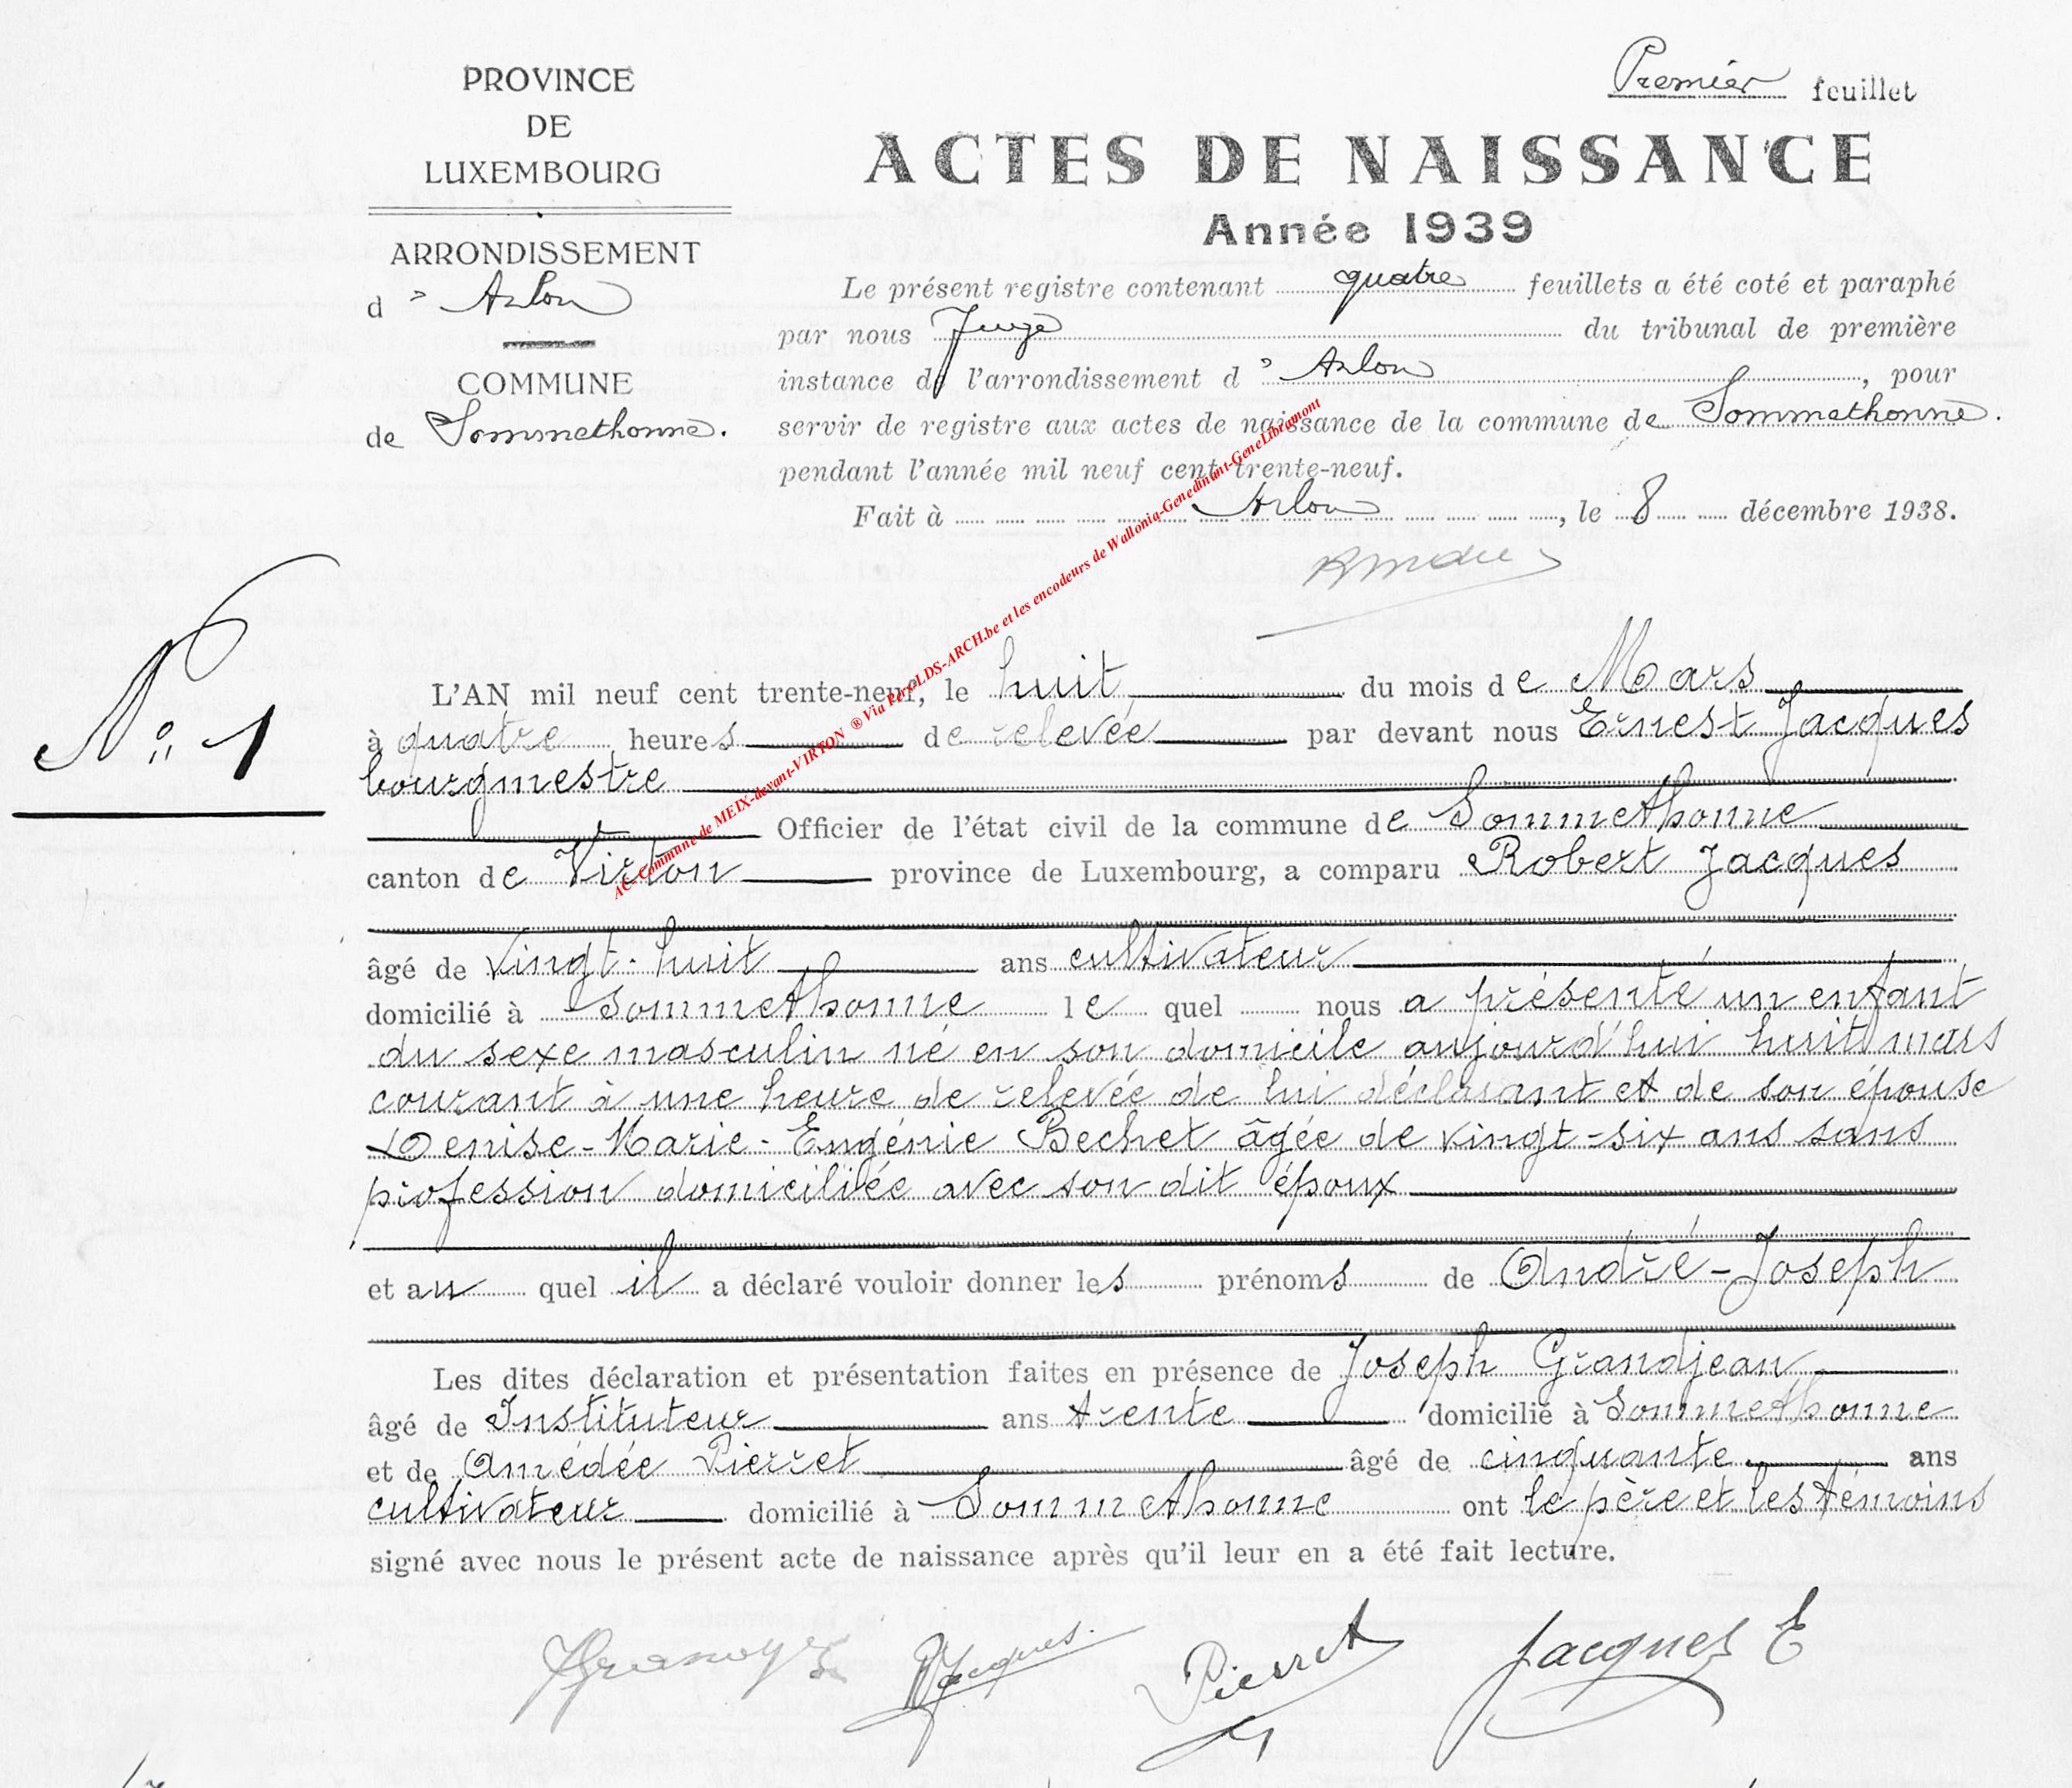 Premier feuillet
PROVINCE
DE
LUXEMBOURG
ARRONDISSEMENT
d'Arlon
COMMUNE
de Sommethonne.
ACTES DE NAISSANCE
Année 1939
Le présent registre contenant quatre feuillets a été coté et paraphé
par nous Juge du tribunal de première
instance de l'arrondissement d'Arlon, pour
servir de registre aux actes de naissance de la commune de Sommethonne.
pendant l'année mil neuf cent trente-neuf.
Fait à Arlon, le 8 décembre 1938.
N° 1
L'AN mil neuf cent trente-neuf, le huit du mois de Mars
à quatre heures de relevée par devant nous Ernest Jacques
bourgmestre
Officier de l'état civil de la commune de Sommethonne
canton de Virton province de Luxembourg, a comparu Robert Jacques
âgé de vingt-huit ans cultivateur
domicilié à Sommethonne lequel nous a présenté un enfant
du sexe masculin né en son domicile aujourd'hui huit mars
courant à une heure de relevée de lui déclarant et de son épouse
Denise-Marie-Eugénie Bechet âgée de vingt-six ans sans
profession domiciliée avec son dit époux
et au quel il a déclaré vouloir donner les prénoms de André-Joseph
Les dites déclaration et présentation faites en présence de Joseph Grandjean
âgé de Instituteur ans trente domicilié à Sommethonne
et de Amédée Pierret âgé de cinquante ans
cultivateur domicilié à Sommethonne ont le père et les témoins
signé avec nous le présent acte de naissance après qu'il leur en a été fait lecture.
R Jacques. Pierret Jacques E
AC-Commune de MEIX-devant-VIRTON ® Via LDS-ARCH.be et les encodeurs de Wallonia-Genedinant-GeneLibramont